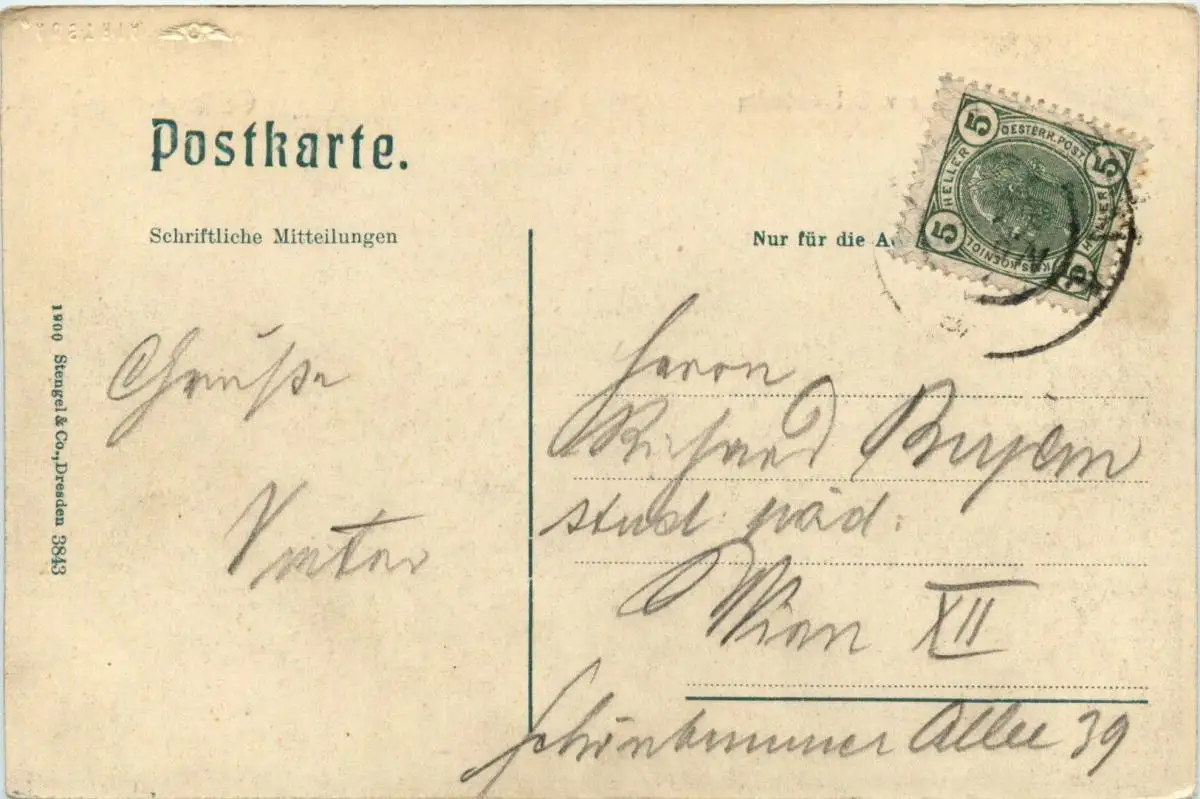 Postkarte.
Schriftliche Mitteilungen
Nur für die A
5 HELLER
OESTERR. POST
5 HELLER
5 KAIS. KOENIGL.
5
1900 Stengel & Co., Dresden 3843
Grüße
Vater
Herrn
Richard
stud. päd.
Wien XII
Schönbrunner Allee 39